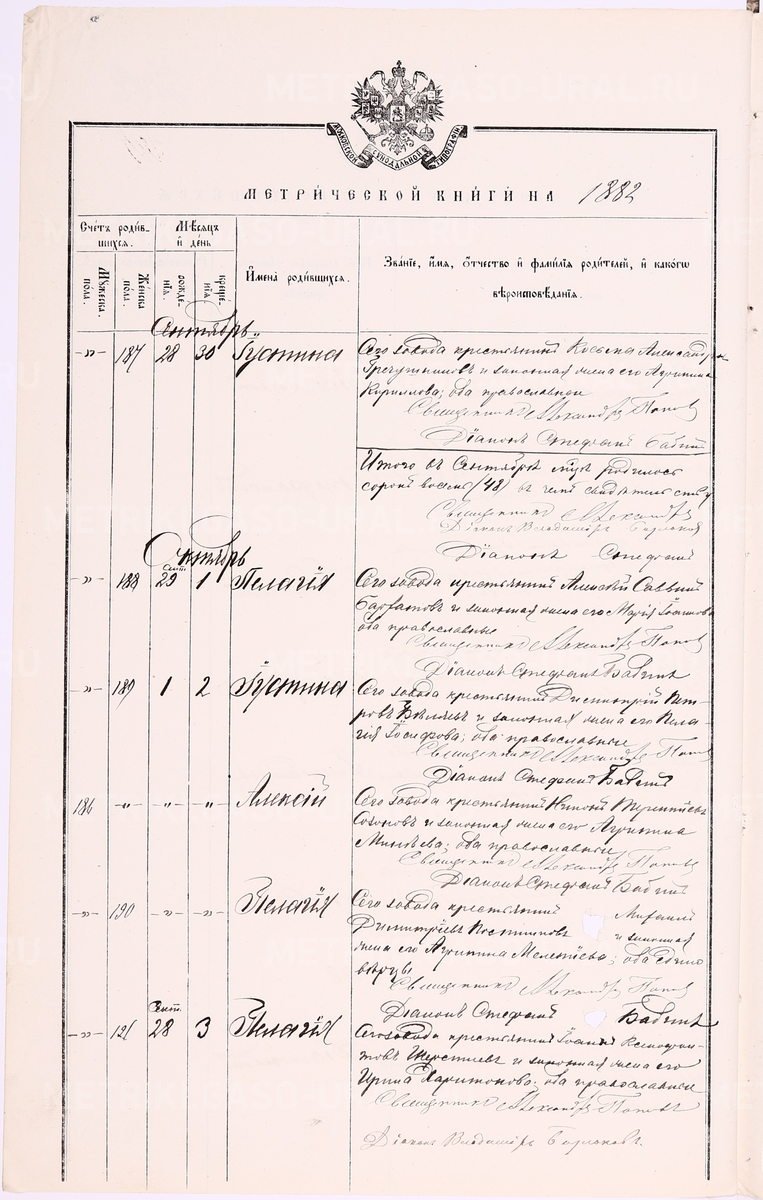 ДУХОВСКОЙ СУНОДАЛЬНОЙ ТИПОГРАФІИ
МЕТРИ́ЧЕСКОЙ КНИ́ГИ НА 1882
Сче́тъ роди́в-
шихся.
Мѣ́сяцъ
и҆ де́нь
И҆мена̀ роди́вшихся.
Зва́нїе, и҆́мѧ, ѻ҆́тчество и҆ фами́лїѧ роди́телей, и҆ како́гѡ
вѣроисповѣ́данїѧ.
Мꙋ́жеска по́ла.
Же́нска по́ла.
рожде́нїѧ.
креще́нїѧ.
Сентябрь
-„- 187 28 30 Іустина
Сего завода крестьянинъ Косьма Александровъ
и законная жена его Агрипина
Кириллова; оба православные
Священникъ Александръ Поповъ
Діаконъ Стефанъ Бабинъ
Итого въ Сентябрѣ мцѣ родилось
сорокъ восемь (48) въ чемъ
Священникъ Александръ
Діаконъ Владиміръ
Діаконъ Стефанъ
Октябрь
Сент.
-„- 188 29 1 Пелагія
Сего завода крестьянинъ Алексѣй Саввинъ
и законная жена его Марія Іоаннова
оба православные
Священникъ Александръ Поповъ
Діаконъ Стефанъ Бабинъ
-„- 189 1 2 Іустина
Сего завода крестьянинъ Димитрій Пет-
ровъ Бѣляевъ и законная жена его Пела-
гія Іосифова; оба православные
Священникъ Александръ Поповъ
Діаконъ Стефанъ Бабинъ
186 -„- -„- -„- Алексій
Сего завода крестьянинъ
и законная жена его Агрипина
оба православные
Священникъ Александръ Поповъ
Діаконъ Стефанъ Бабинъ
-„- 190 -„- -„- Пелагія
Сего завода крестьянинъ
Димитріевъ Постниковъ и законная
жена его Агрипина Мелетіева; оба едино-
вѣрцы
Священникъ Александръ Поповъ
Діаконъ Стефанъ Бабинъ
Сент.
-„- 191 28 3 Пелагія
Сего завода крестьянинъ Іоаннъ Ксенофон-
товъ и законная жена его
Ирина Харитонова; оба православные
Священникъ Александръ Поповъ
Діаконъ Владиміръ